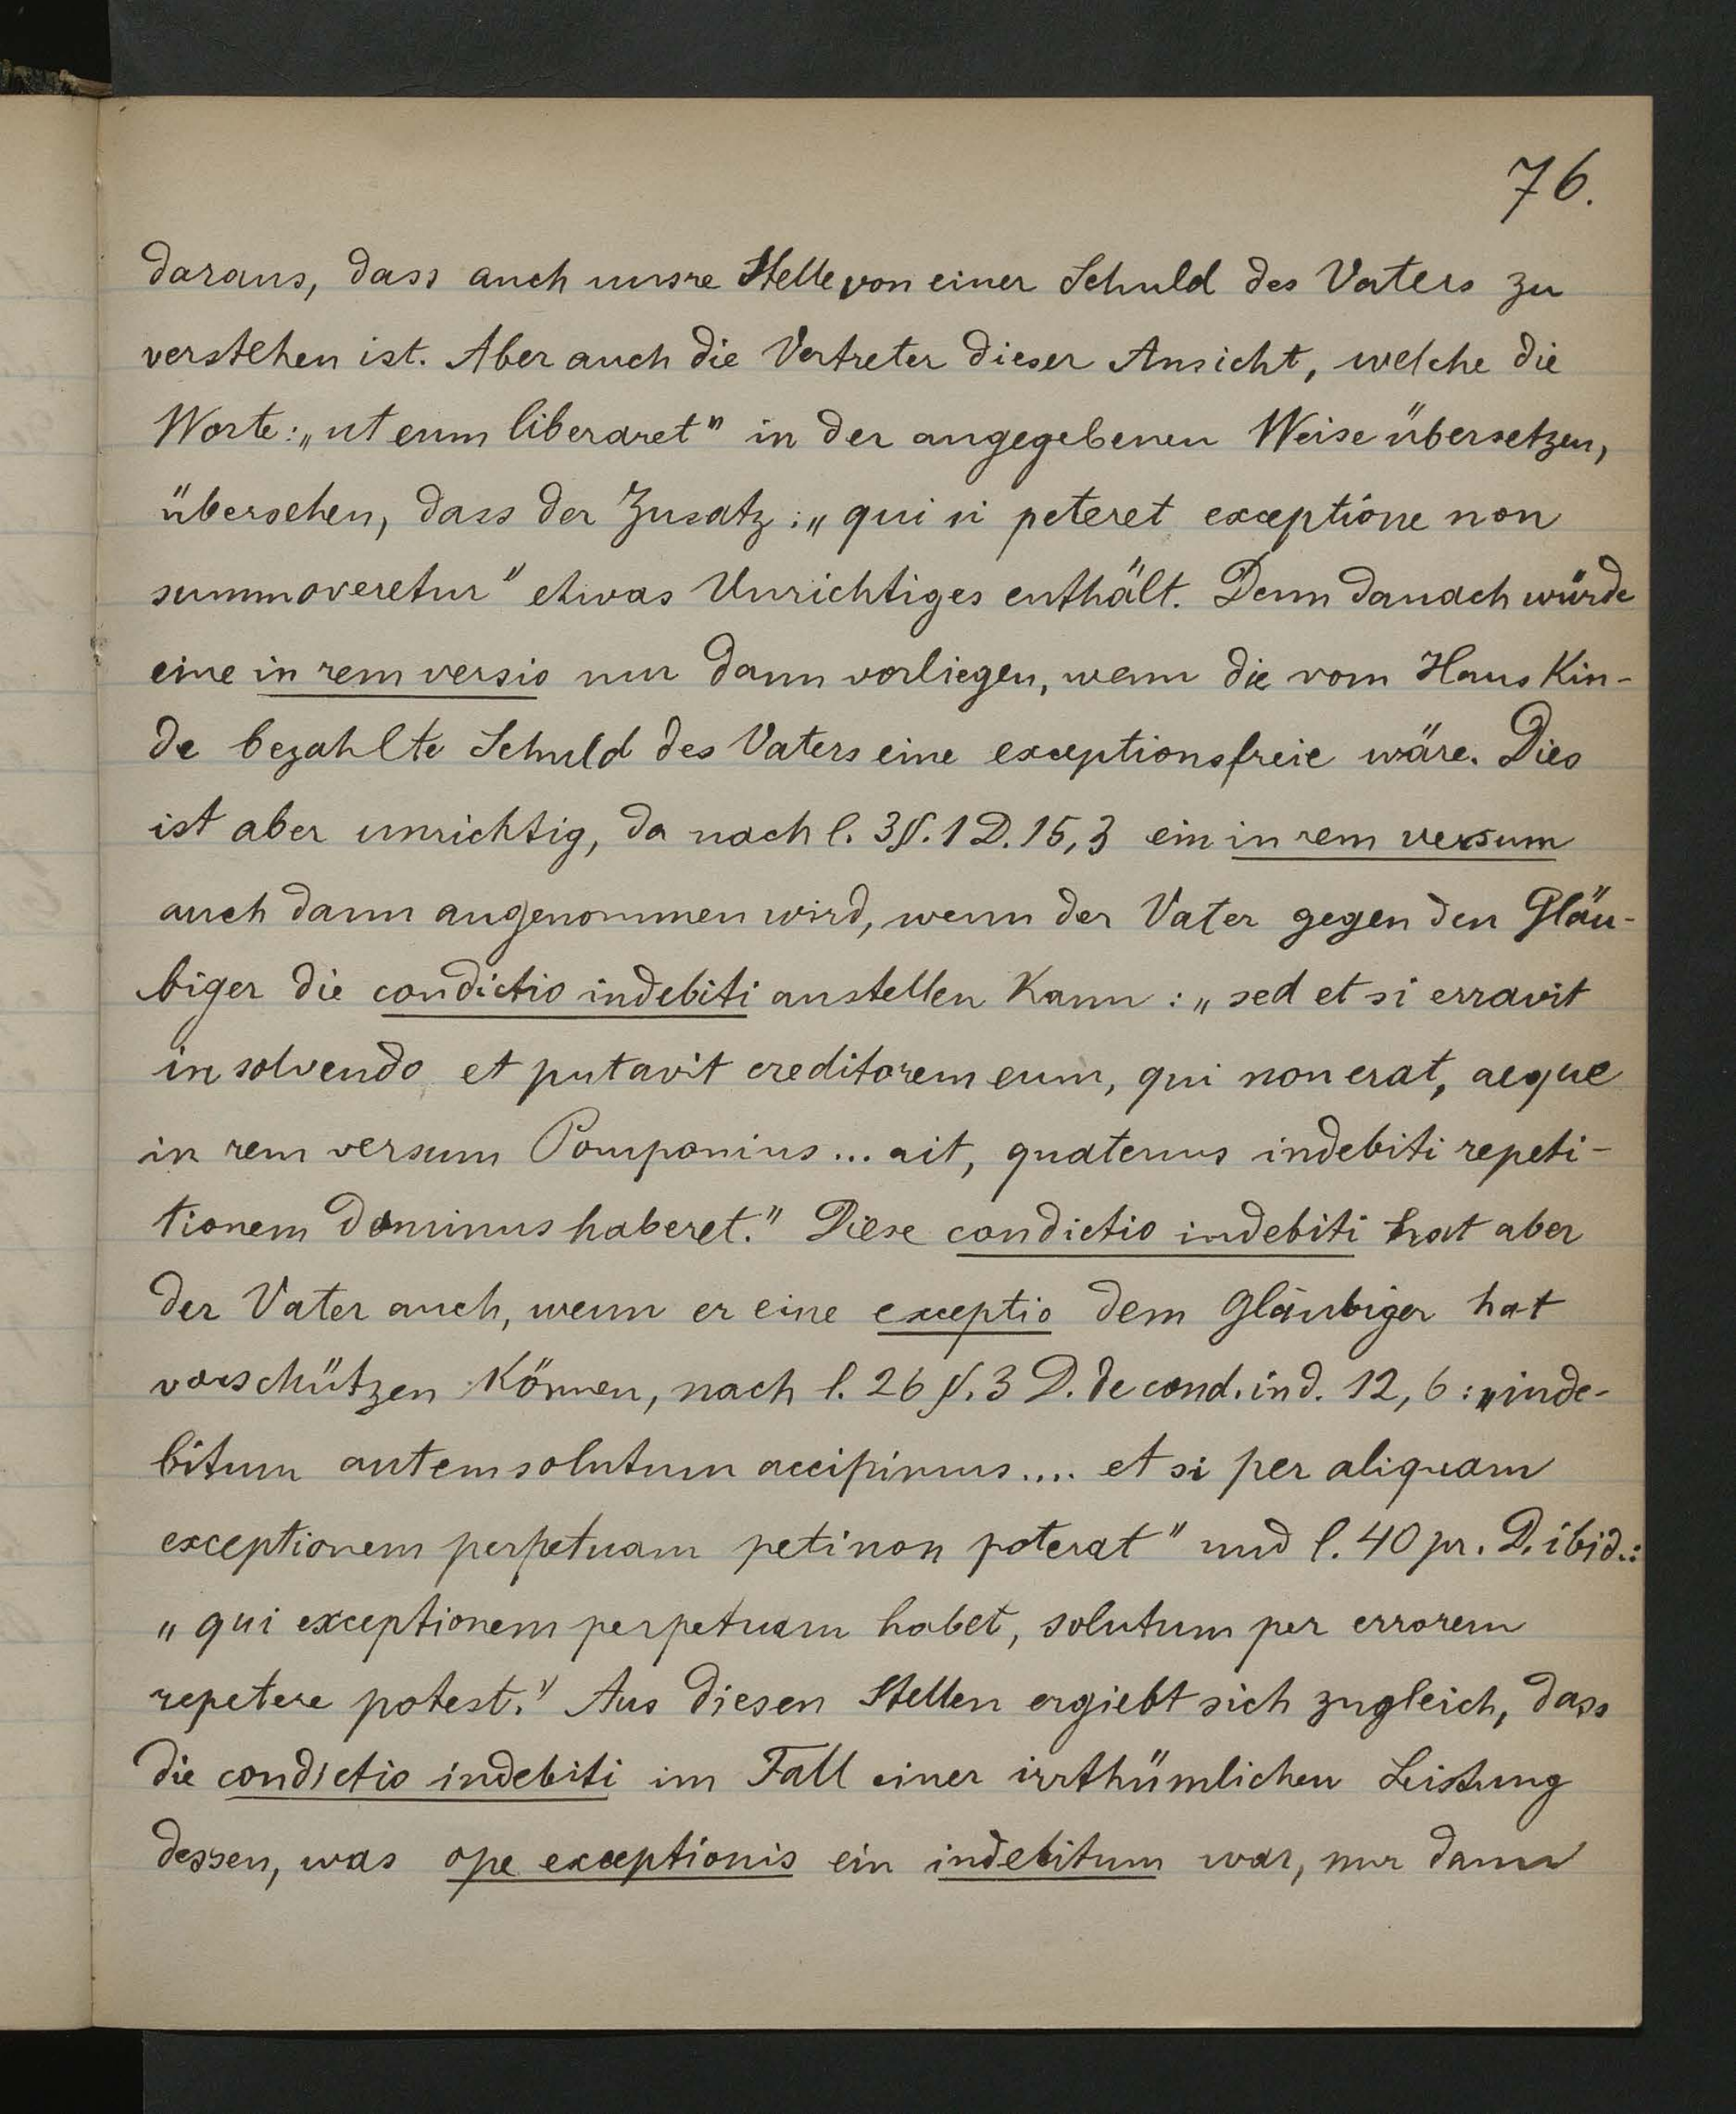 76.
daraus, dass auch unsre Stelle von einer Schuld des Vaters zu
verstehen ist. Aber auch die Vertreter dieser Ansicht, welche die
Worte: „ut eum liberaret" in der angegebenen Weise übersetzen,
übersehen, dass der Zusatz: „qui si peteret exceptione non
summoveretur" etwas Unrichtiges enthält. Denn danach würde
eine in rem versio nur dann vorliegen, wenn die vom Hauskin-
de bezahlte Schuld des Vaters eine exceptionsfreie wäre. Dies
ist aber unrichtig, da nach l. 3 §. 1 D. 15, 3 ein in rem versum
auch dann angenommen wird, wenn der Vater gegen den Gläu-
biger die condictio indebiti anstellen kann: „sed et si erravit
in solvendo et putavit creditorem eum, qui non erat, aeque
in rem versum Pomponius... ait, quatenus indebiti repeti-
tionem dominus haberet." Diese condictio indebiti hat aber
der Vater auch, wenn er eine exceptio dem Gläubiger hat
vorschützen können, nach l. 26 §. 3 D. de cond. ind. 12, 6: „inde-
bitum autem solutum accipimus.... et si per aliquam
exceptionem perpetuam peti non poterat" und l. 40 pr. D. ibid.:
„qui exceptionem perpetuam habet, solutum per errorem
repetere potest." Aus diesen Stellen ergiebt sich zugleich, dass
die condictio indebiti im Fall einer irrthümlichen Leistung
dessen, was ope exceptionis ein indebitum war, nur dann